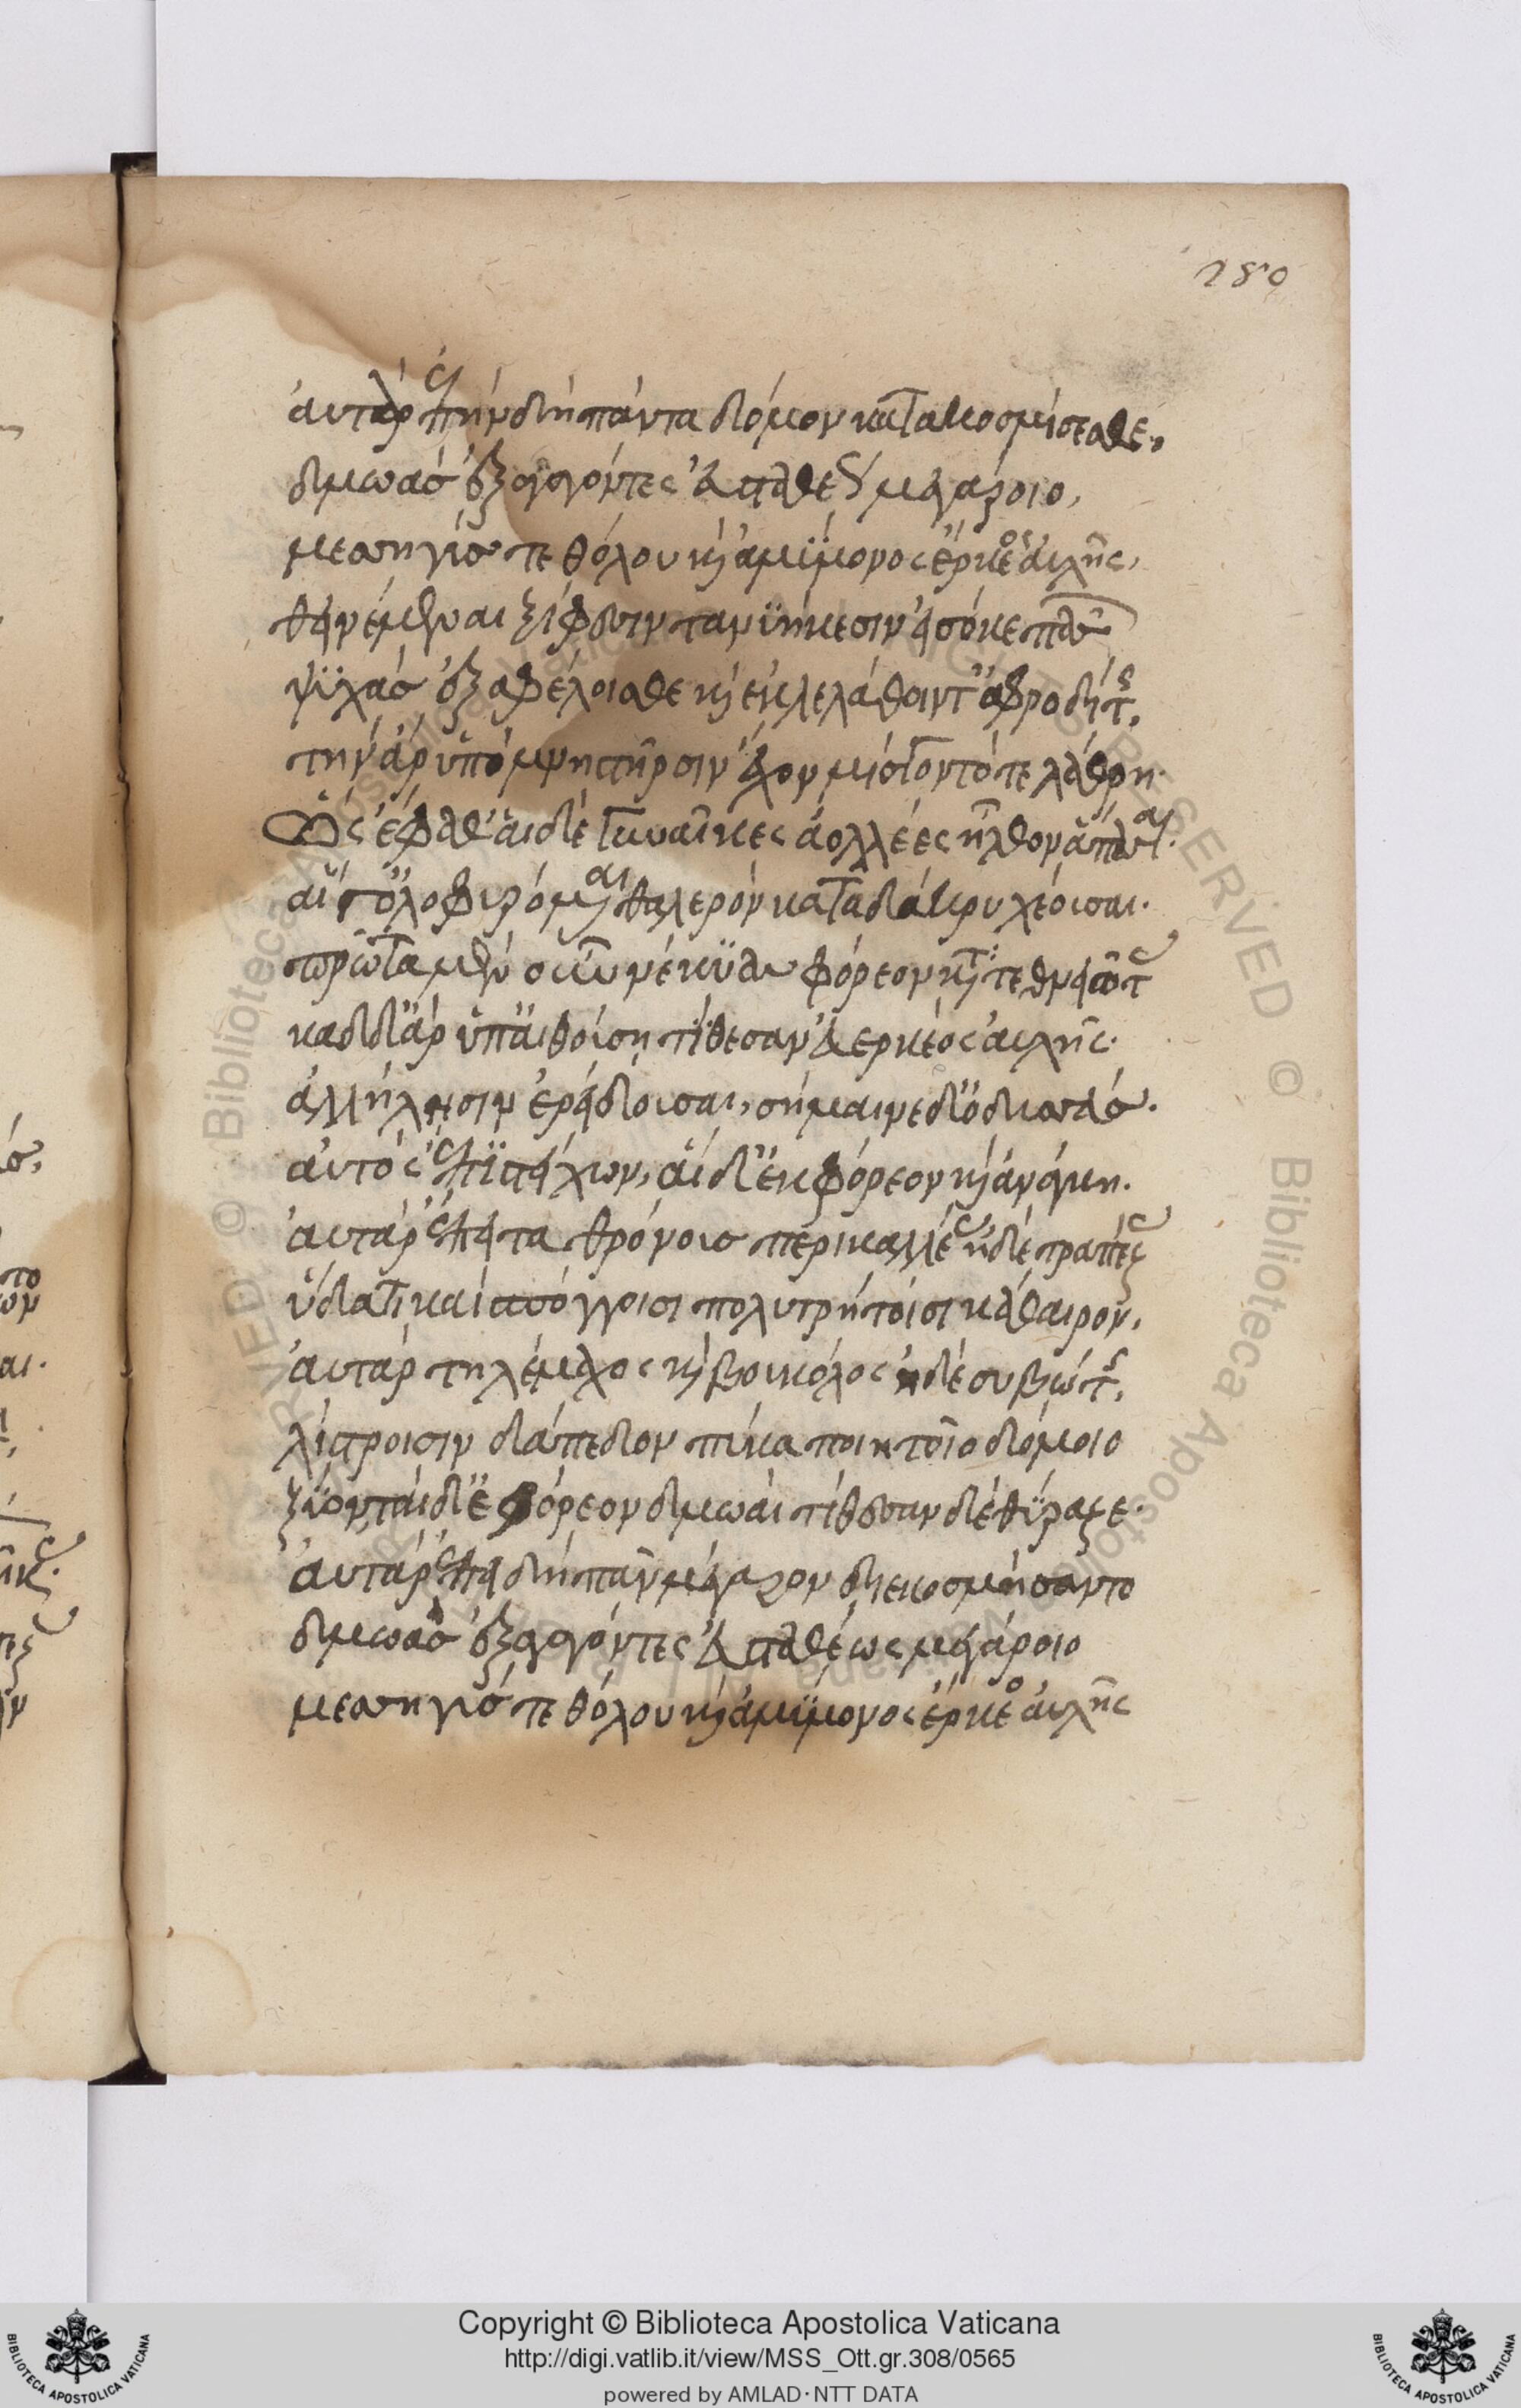 280
αυτὰρ ἐπὴν δὴ πάντα δόμον κατακοσμήσεσθε,
δμωὰσ ἐξαγαγόντες ἐυσταθέος μεγάροιο,
μεσσηγύσ τε θόλου καὶ ἀμύμονος ἕρκεος αὐλῆς,
θεινέμεναι ξίφεσιν τανϋήκεσιν εἰσόκε πασέων
ψϋχὰσ ἐξαφέλοισθε καὶ ἐκλελάθοιντ' ἀφροδίτης,
τὴν ἄρ ὑπὸ μνηστῆρσιν ἔχον μίσγοντό τε λάθρη.
Ὣς ἔφαθ' αἱ δὲ γυναῖκες ἀολλέες ἦλθον ἅπασαι.
αἴν' ὀλοφυρόμεναι θαλερὸν κατὰ δάκρυ χέουσαι.
πρῶτα μὲν οὖν νέκϋας φόρεον κατατεθνειῶτας
καδδ' ἄρ ὑπ' αἰθούση τίθεσαν ἐυερκέος αὐλῆς.
ἀλλήλησιν ἐρείδουσαι, σήμαινε δ' ὀδυσσεύσ.
αὐτὸς ἐπισπείχων, αἱ δ' ἐκφόρεον καὶ ἀνάγκη.
αὐτὰρ ἔπειτα θρόνουσ περικαλλέας ἠδὲ τραπέζας
ὕδατι καὶ σπόγγοισι πολυτρήτοισι κάθαιρον,
αὐτὰρ τηλέμαχος καὶ βουκόλος ἠδὲ συβώτης,
λίστροισιν δάπεδον πύκα ποιητοῖο δόμοιο
ξῦον, ταὶ δ' ἐφόρεον δμωαὶ τίθεσαν δὲ θύραζε.
αὐτὰρ ἐπειδὴ πᾶν μέγαρον διεκοσμήσαντο
δμωὰσ ἐξαγαγόντες ἐυσταθέως μεγάροιο
μεσσηγύσ τε θόλου καὶ ἀμύμονος ἕρκεος αὐλῆς
Copyright © Biblioteca Apostolica Vaticana
http://digi.vatlib.it/view/MSS_Ott.gr.308/0565
powered by AMLAD·NTT DATA